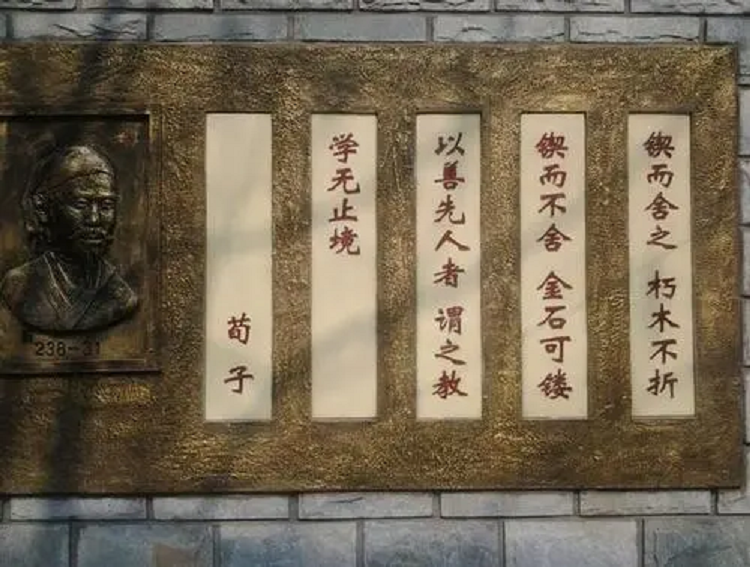 锲而舍之 朽木不折
锲而不舍 金石可镂
以善先人者 谓之教
学无止境
荀子
238-31